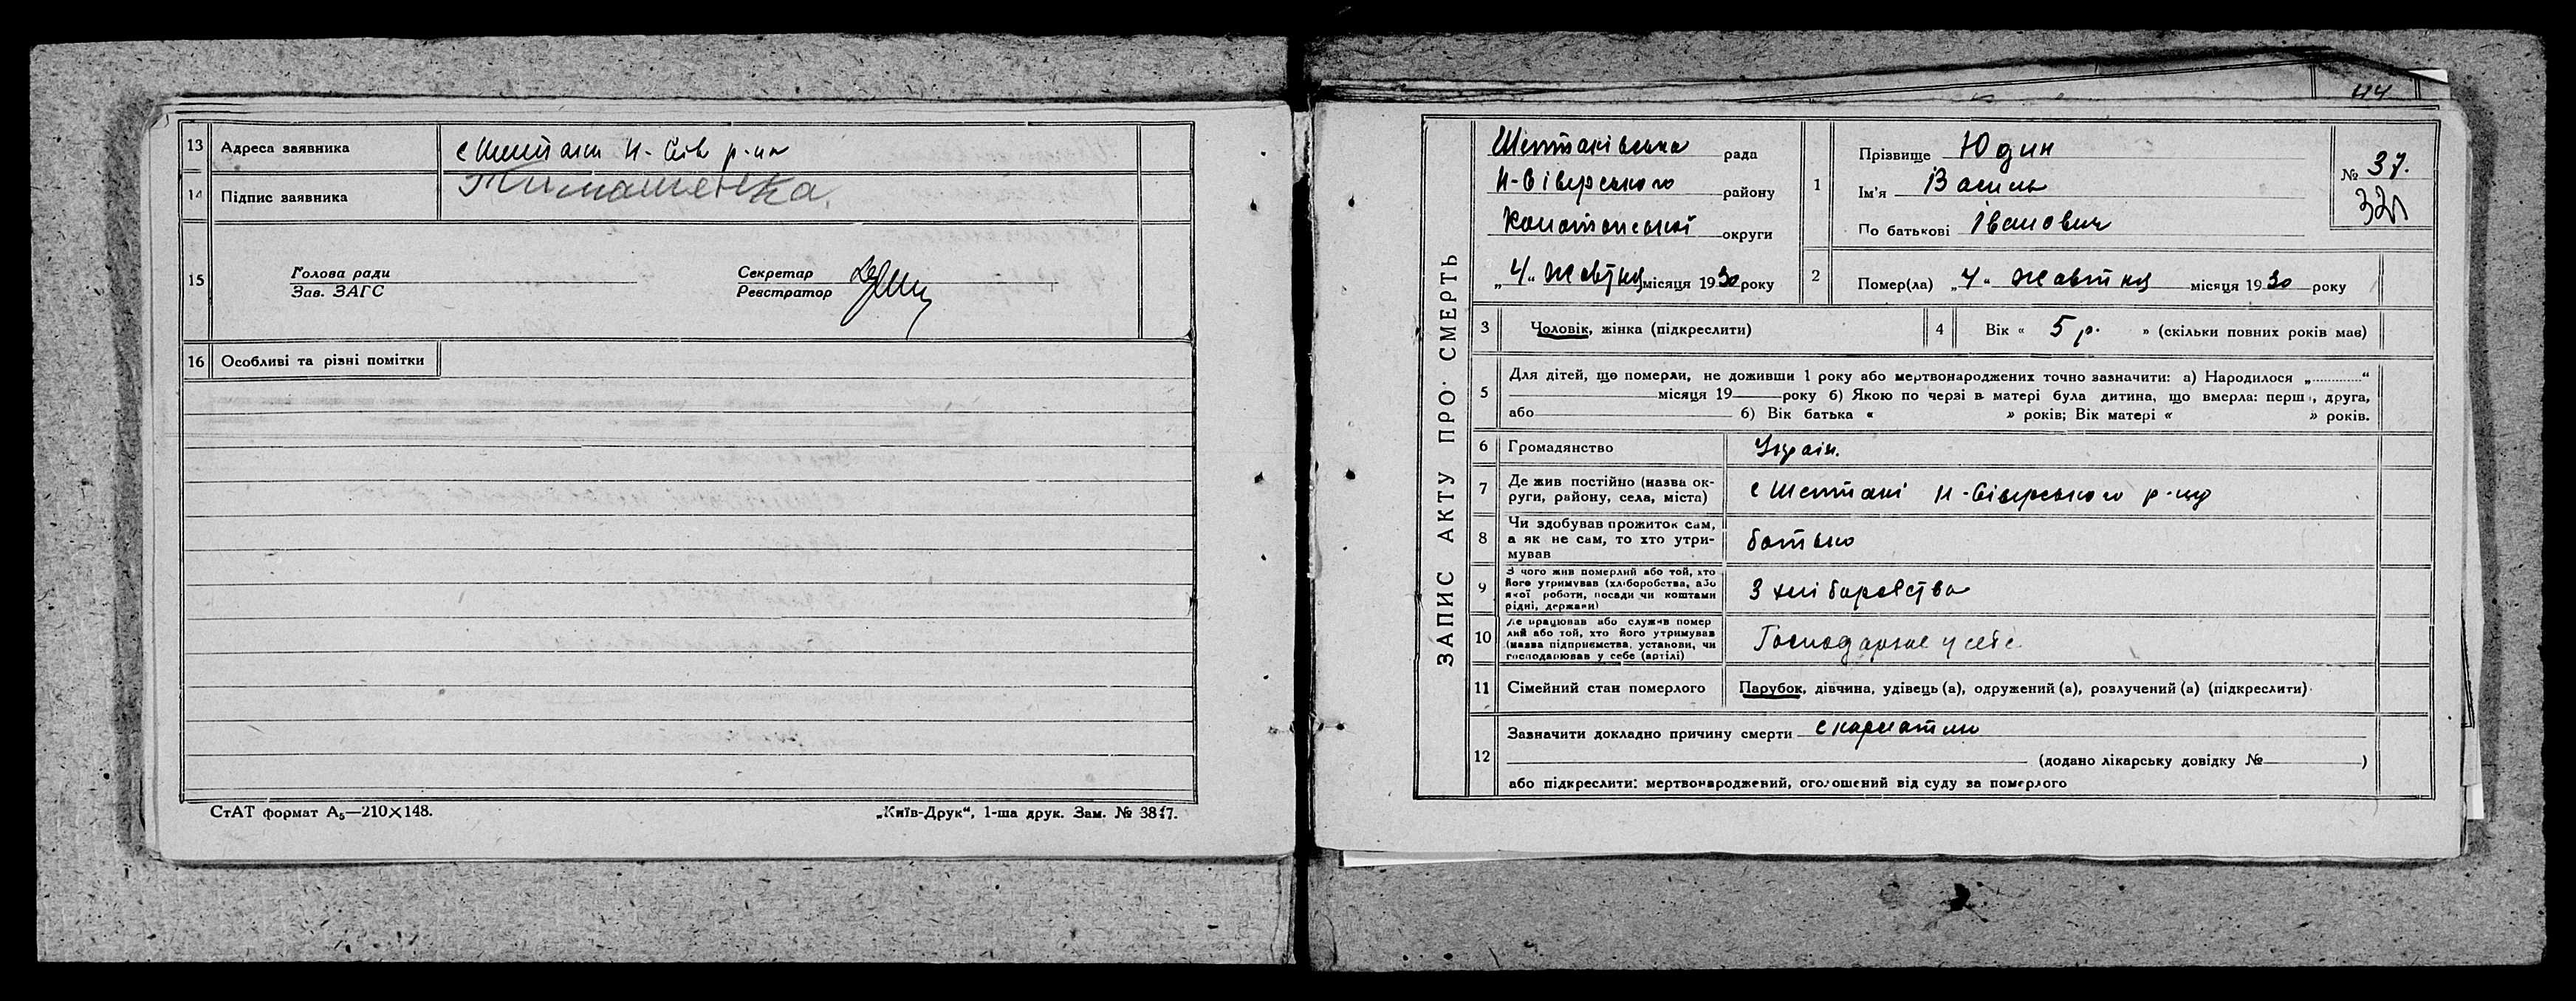 13 Адреса заявника с Шептаки Н-Сів р-ну
14 Підпис заявника Тимошенка
15 Голова ради
Зав. ЗАГС
Секретар
Реєстратор
16 Особливі та різні помітки
СтАТ формат А₅—210×148.
„Київ-Друк“, 1-ша друк. Зам. № 3817.
44
ЗАПИС АКТУ ПРО СМЕРТЬ
Шептаківська рада
Н-Сіверського району
Конотопської округи
„4“ Жовтня місяця 1930 року
1 Прізвище Юдин
Ім'я Василь
По батькові Іванович
№ 37.
32
2 Помер(ла) „4“ Жовтня місяця 1930 року
3 Чоловік, жінка (підкреслити)
4 Вік « 5 р. » (скільки повних років має)
5 Для дітей, що померли, не доживши 1 року або мертвонароджених точно зазначити: а) Народилося „............“
місяця 19 року б) Якою по черзі в матері була дитина, що вмерла: перша, друга,
або б) Вік батька « » років; Вік матері « » років.
6 Громадянство Україн.
7 Де жив постійно (назва ок-
руги, району, села, міста) с Шептакі Н-Сіверського р-ну
8 Чи здобував прожиток сам,
а як не сам, то хто утри-
мував батько
9 З чого жив померлий або той, хто
його утримував (хліборобства, або
якої роботи, посади чи коштами
рідні, держави) З хліборобства
10 Де працював або служив помер
лий або той, хто його утримував
(назва підприємства, установи, чи
господарював у себе (артілі) Господарює у себе
11 Сімейний стан померлого Парубок, дівчина, удівець (а), одружений (а), розлучений (а) (підкреслити)
12 Зазначити докладно причину смерти скарлатина
(додано лікарську довідку № )
або підкреслити: мертвонароджений, оголошений від суду за померлого